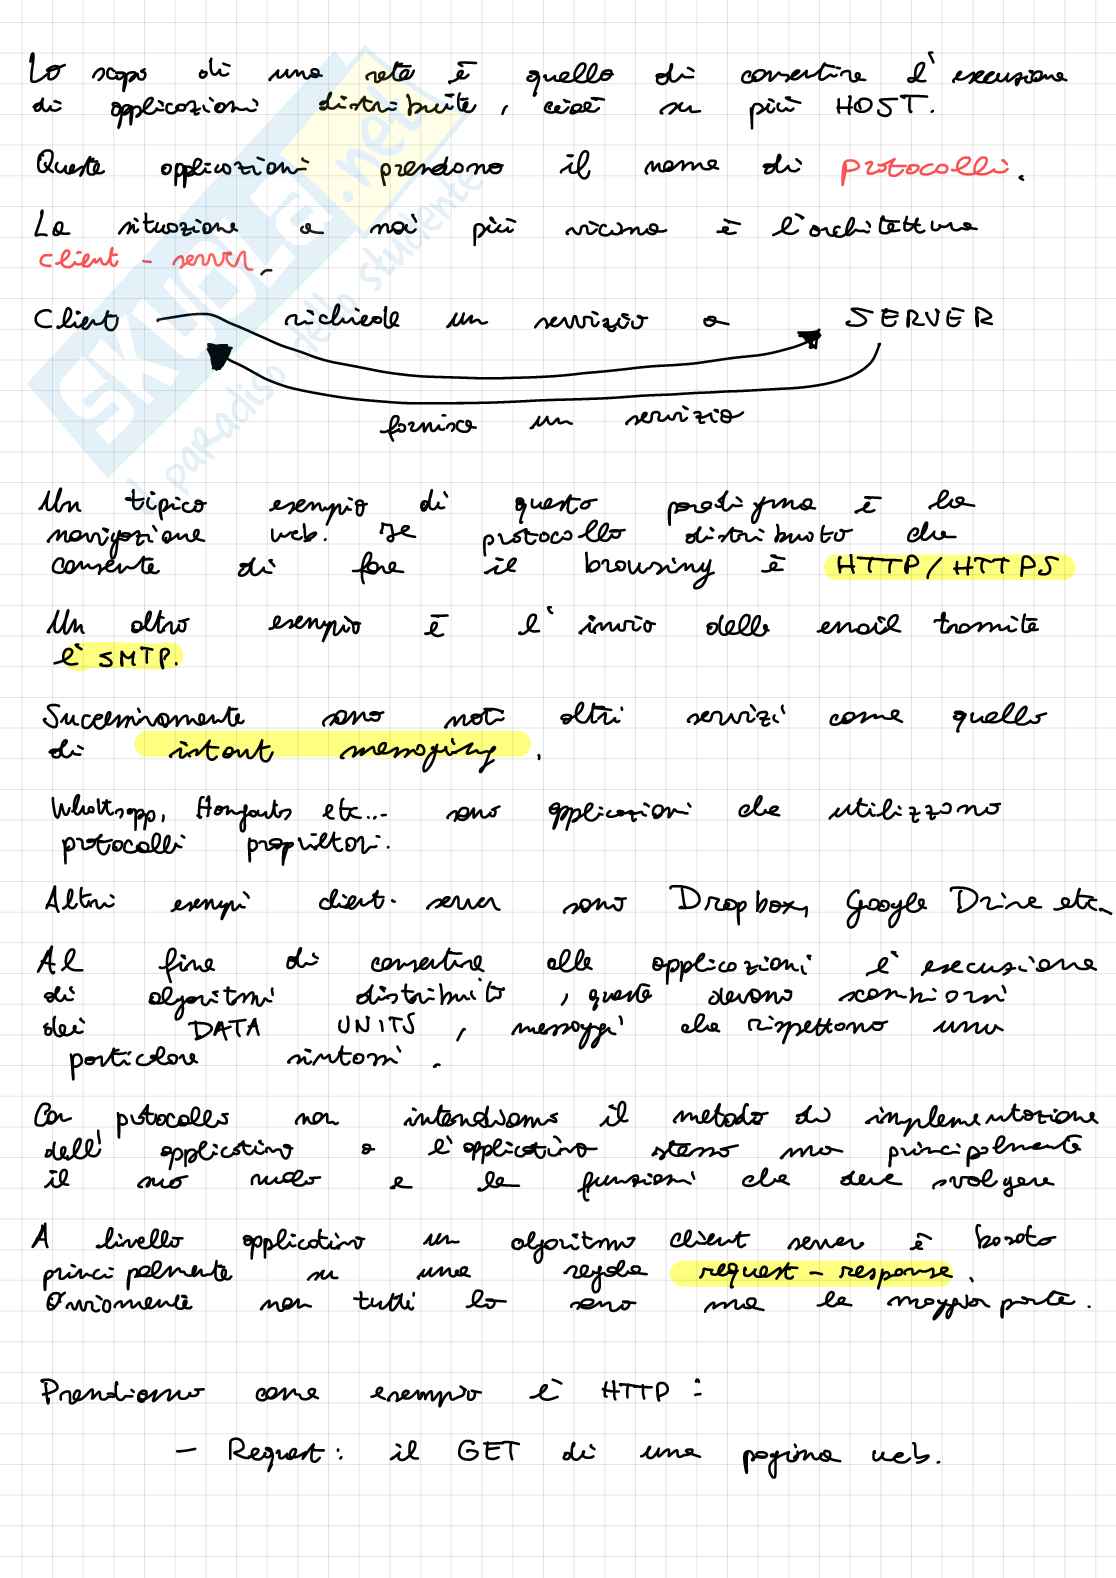 Lo scopo di una rete è quello di consentire l'esecuzione
di applicazioni distribuite, cioè su più HOST.
Queste applicazioni prendono il nome di protocolli.
La situazione a noi più vicina è l'architettura
client - server.
Client richiede un servizio a SERVER
fornisce un servizio
Un tipico esempio di questo paradigma è la
navigazione web. Il protocollo distribuito che
consente di fare il browsing è HTTP/HTTPS
Un altro esempio è l'invio delle email tramite
l'SMTP.
Successivamente sono nati altri servizi come quello
di istant messaging.
Whatsapp, Hangouts etc... sono applicazioni che utilizzano
protocolli proprietari.
Altri esempi client-server sono Dropbox, Google Drive etc..
Al fine di consentire alle applicazioni l'esecuzione
di algoritmi distribuito, queste devono scambiarsi
dei DATA UNITS, messaggi che rispettano una
particolare sintassi.
Con protocollo non intendiamo il metodo di implementazione
dell'applicativo o l'applicativo stesso ma principalmente
il suo ruolo e le funzioni che deve svolgere
A livello applicativo un algoritmo client server è basato
principalmente su una regola request-response.
Ovviamente non tutti lo sono ma la maggior parte.
Prendiamo come esempio l'HTTP:
- Request: il GET di una pagina web.
SKUOLA.net
il paradiso dello studente